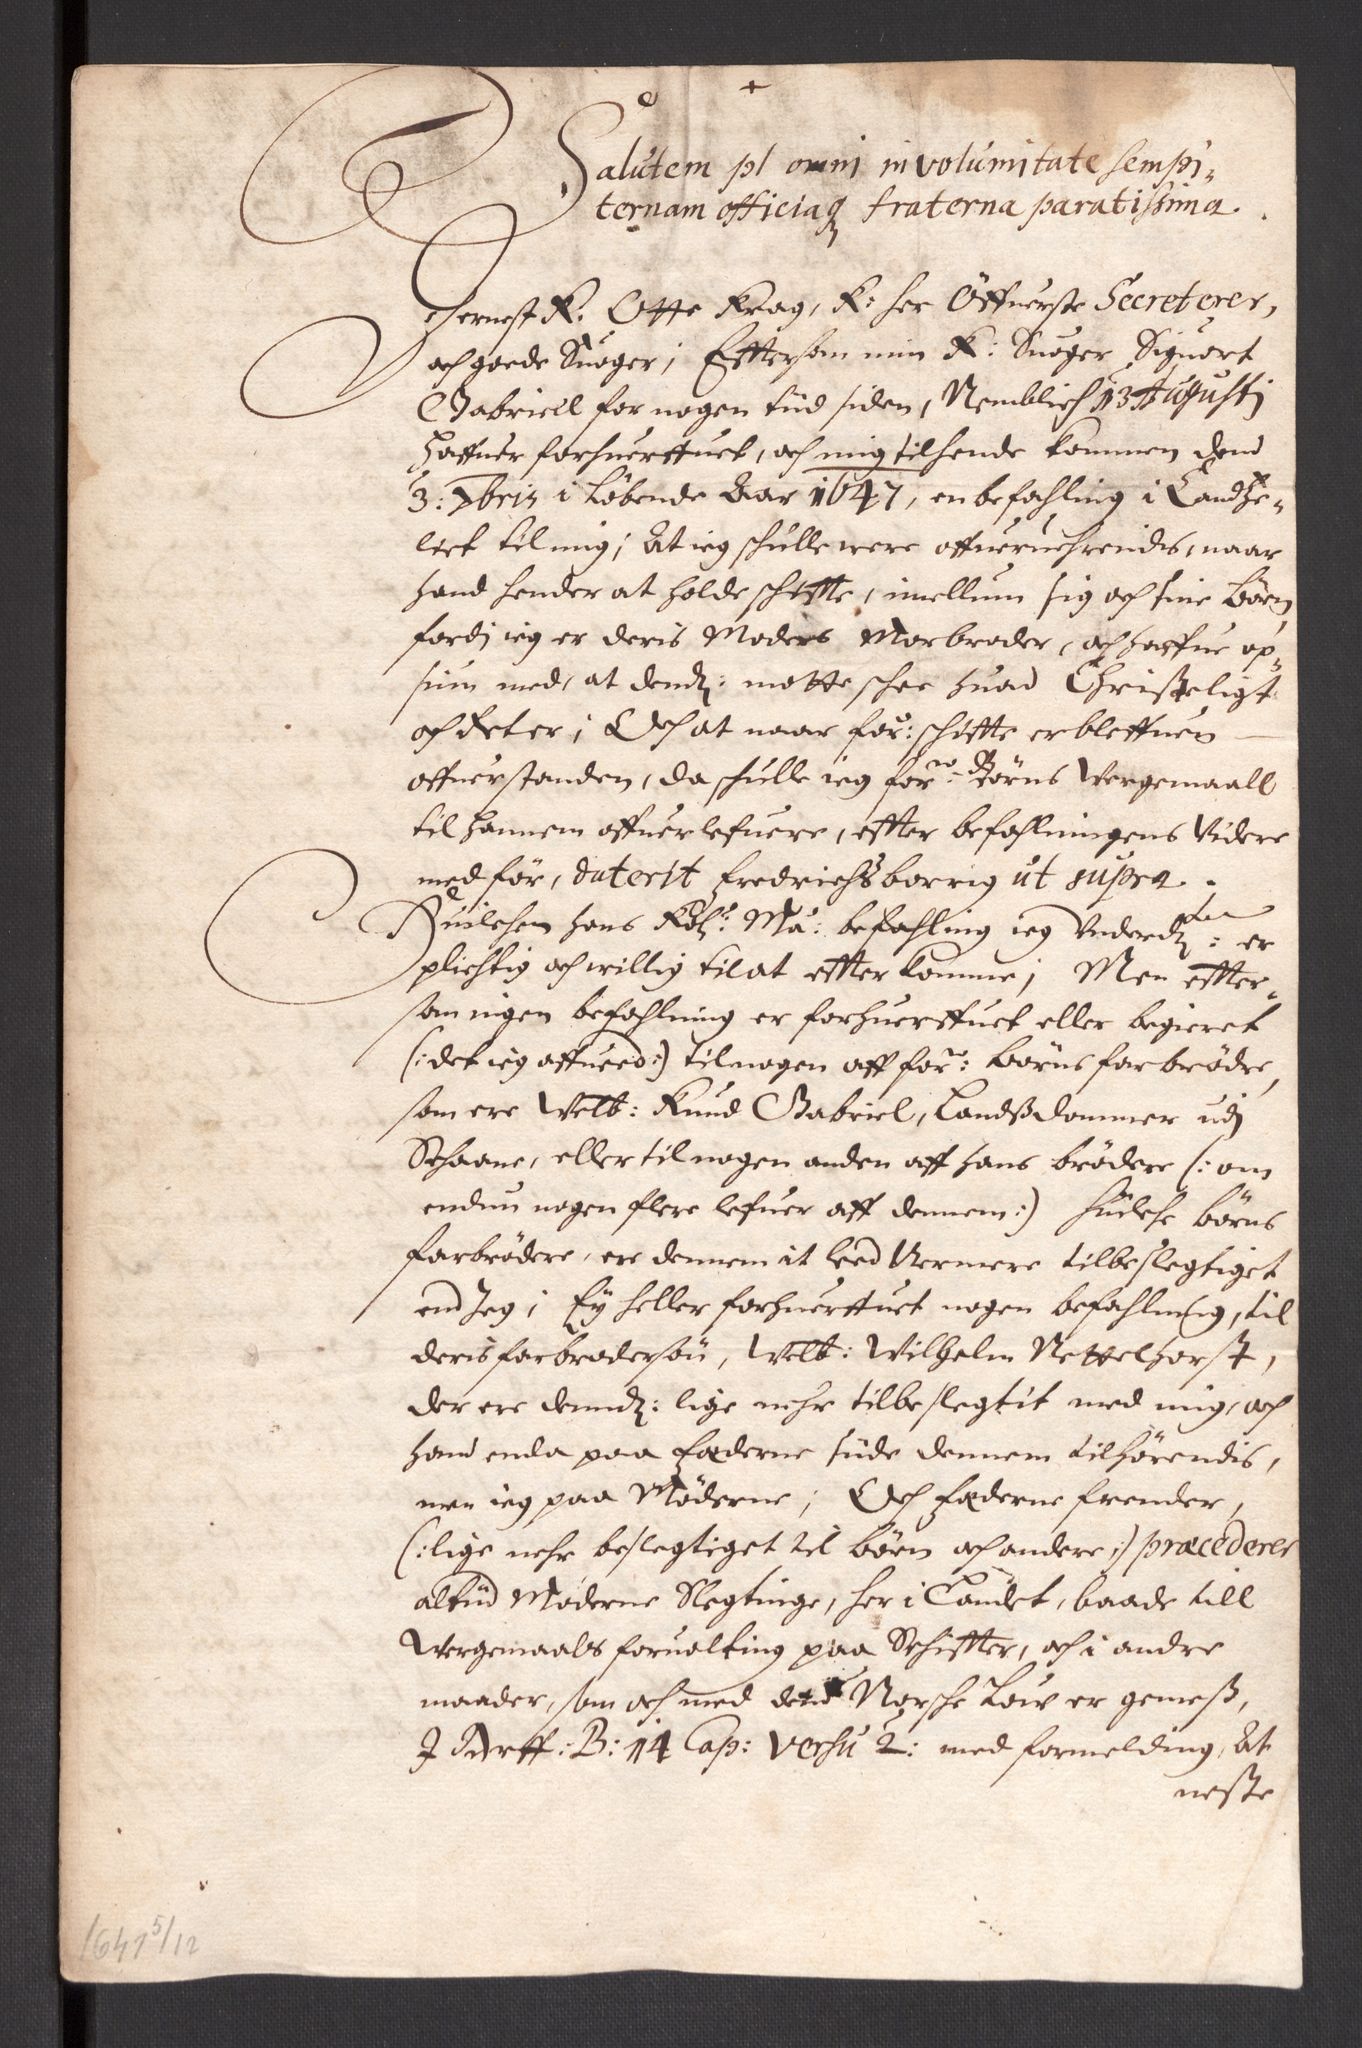 +
Salutem pl omni involumitate sempi-
ternam officiaq fraterna paratissima.
Gernest K. Otte Krag, K: her Öffuerste Secreterer,
och goede Suoger; Efftersom min K: Suoger Siguort
Gabriell for nogen tiid siden, Nemblich 13 Augustj
haffuer forhuerffuet, och mig tilhende kommen dend
3: 7bris i løbende Aar 1647, en befahling i Candtze-
liet til mig; At ieg schulle were offueruehrendis, naar
hand hender at holde schiffte, imellum sig och sine Börn,
fordj ieg er deris Moders Morbroder, och haffue op-
siun med, at dend: motte schee huad Christeligt
och Ret er; Och at naar for: schiffte er bleffuen
offuerstanden, da schulle ieg forne Börns Vergemaall
til hannem offuerlefuere, effter befahlningens Videre
medför, daterit Fredrichsborrig ut supra.
Huilchen hans Kgl: Ma: befahling ieg Vnderdten: er
plichtig och willig til at effterkomme; Men effter-
som ingen befahlning er forhuerffuet eller begieret
(: det ieg aff ueed :) til nogen aff forne: börns farbrödre,
som ere Velb: Knud Gabriel, Landsdommer udj
Schaane, eller til nogen anden aff hans brödere (: om
endnu nogen flere lefuer aff dennem :) huilche börns
farbrödere, ere dennem it leed Nermere tilbeslegtiget
end Jeg; Ey heller forhuerffuet nogen befahlning, til
deris farbrodersön, Velb: Wilhelm Nettelhorst,
der ere dennd: lige nehr tilbeslegtit med mig, och
hand enda paa Fæderne siide dennem tilhörendis,
men ieg paa Möderne; Och Fæderne frender,
(: lige nehr beslegtiget til börn och andere :) præcederer
altiid Möderne Slegtinge, her i Landet, baade till
Vergemaals foruolting paa Schiffter, och i andre
maader, som och med dend Norsche Low er gemess,
J Arff: B: 14 Cap: Versu 2: med formelding, At
neste
1647 5/12